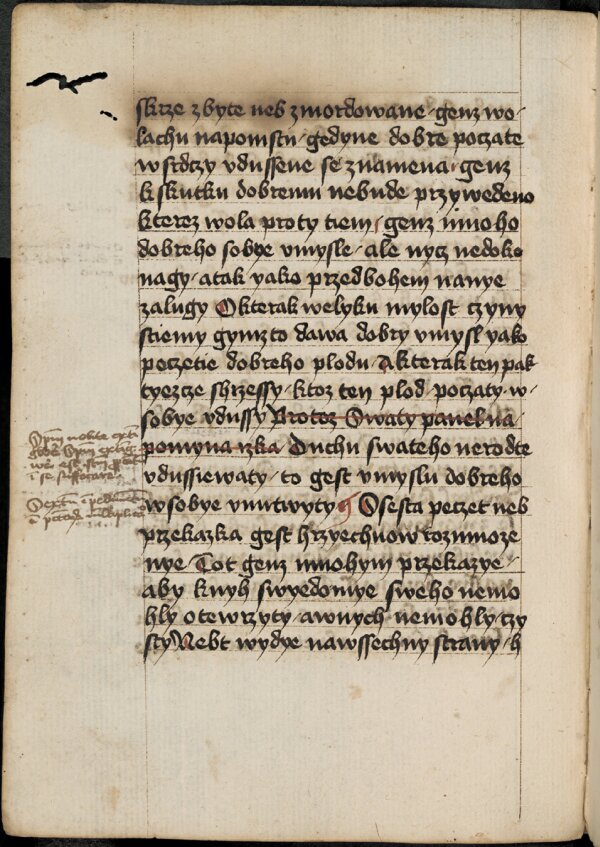 skrze zbyte neb zmordowane genz wo-
lachu napomstu gedyne dobre poczate
w srdczy vdussene se znamena genz
k skutku dobremu nebude przywedeno
kterez wola proty tiem genz mnoho
dobreho sobye vmysle ale nycz nedoko
nagy atak yako przed bohem nanye
zalugy Okterak welyku mylost czyny
stiemy gymzto dawa dobry vmysl yako
poczetie dobreho plodu Akterak ten pak
tyezcze shrzessy ktoz ten plod poczaty w-
sobye vdussy Protoz Swaty pawel na
pomyna rzka Duchu swateho nerodte
vdussiewaty to gest vmyslu dobreho
w sobye vmrtwyty Osesta peczet neb
przekazka gest hrzyechuow rozmnoze
nye Tot genz mnohym przekazye
aby knyh swyedomye sweho nemo
hly otewrzyty awnych nemohly czy
sty Nebt wydye nawssechny strany h
Spm nolite exti